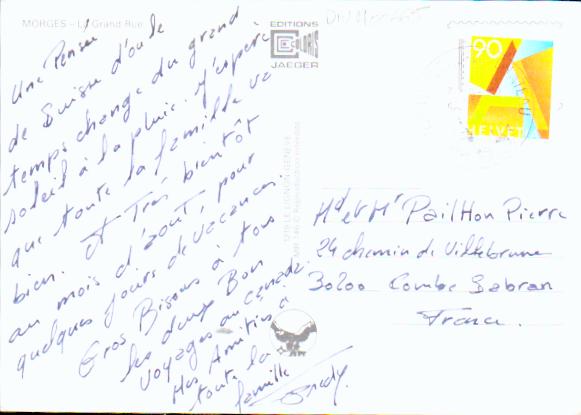 MORGES - La Grand Rue
EDITIONS
COLORIS
JAEGER
90
HELVETIA
Une Pensée
de Suisse d'ou le
temps change du grand
soleil à la pluie. J'espère
que toute la famille va
bien. et Très bientôt
au mois d'août, pour
quelques jours de vacances.
Gros Bisous à tous
les deux Bon
voyages au canada.
Mes Amitiés à
toute la
famille
1219 LE LIGNON-GENÈVE
Md et Mr Pailhon Pierre
24 chemin de Villebrune
30200 Combe Sabran
France.